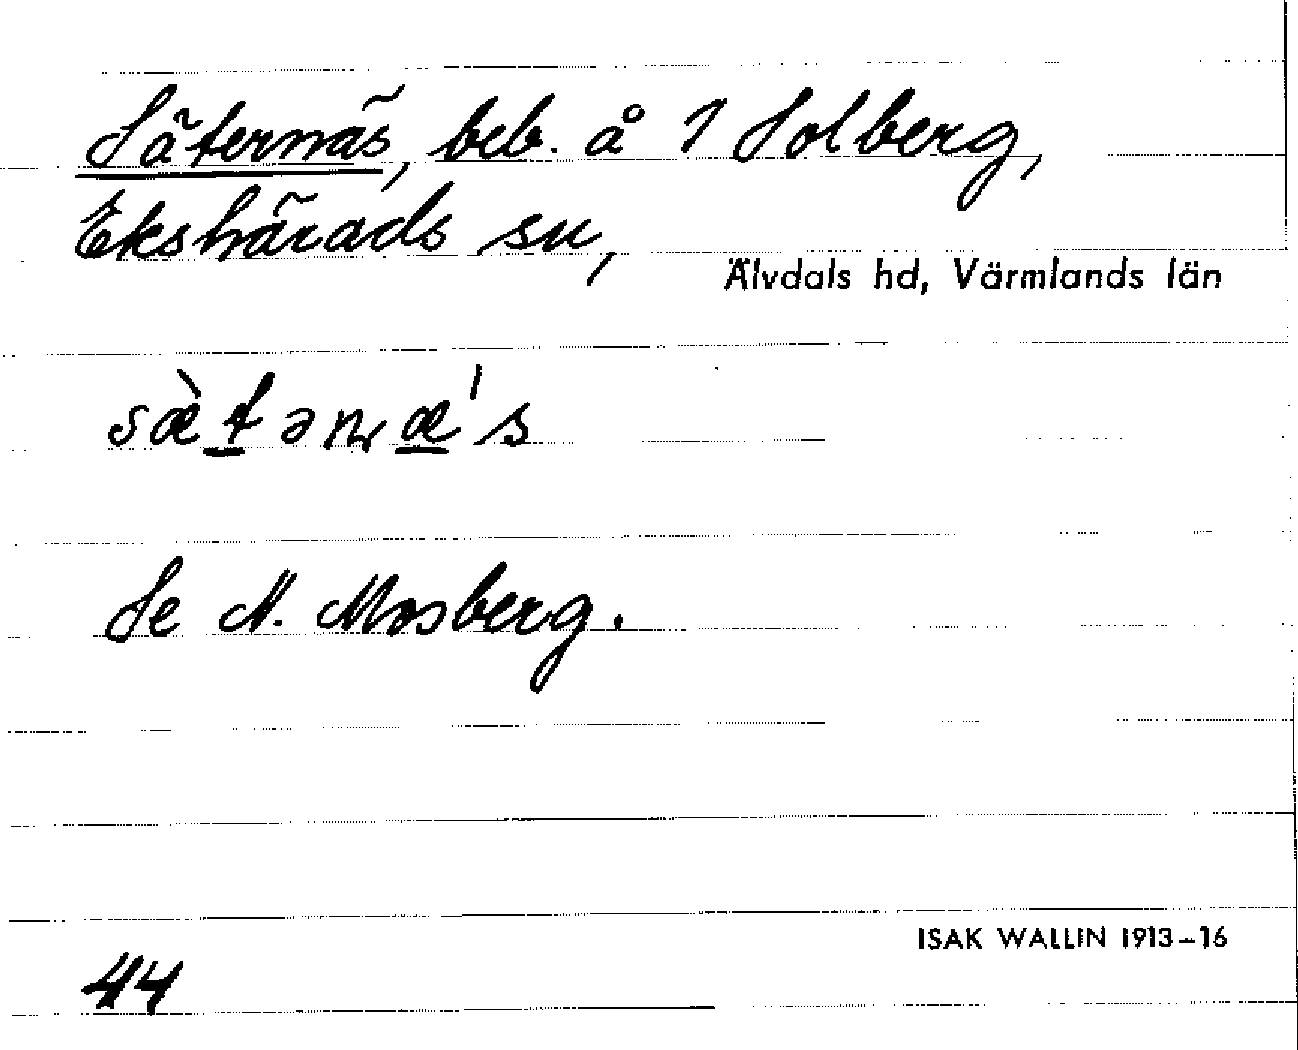 Säternäs, beb. å 1 Solberg,
Ekshärads sn,
Älvdals hd, Värmlands län
sæ̀tənæ's
Se N. Mosberg.
ISAK WALLIN 1913–16
44